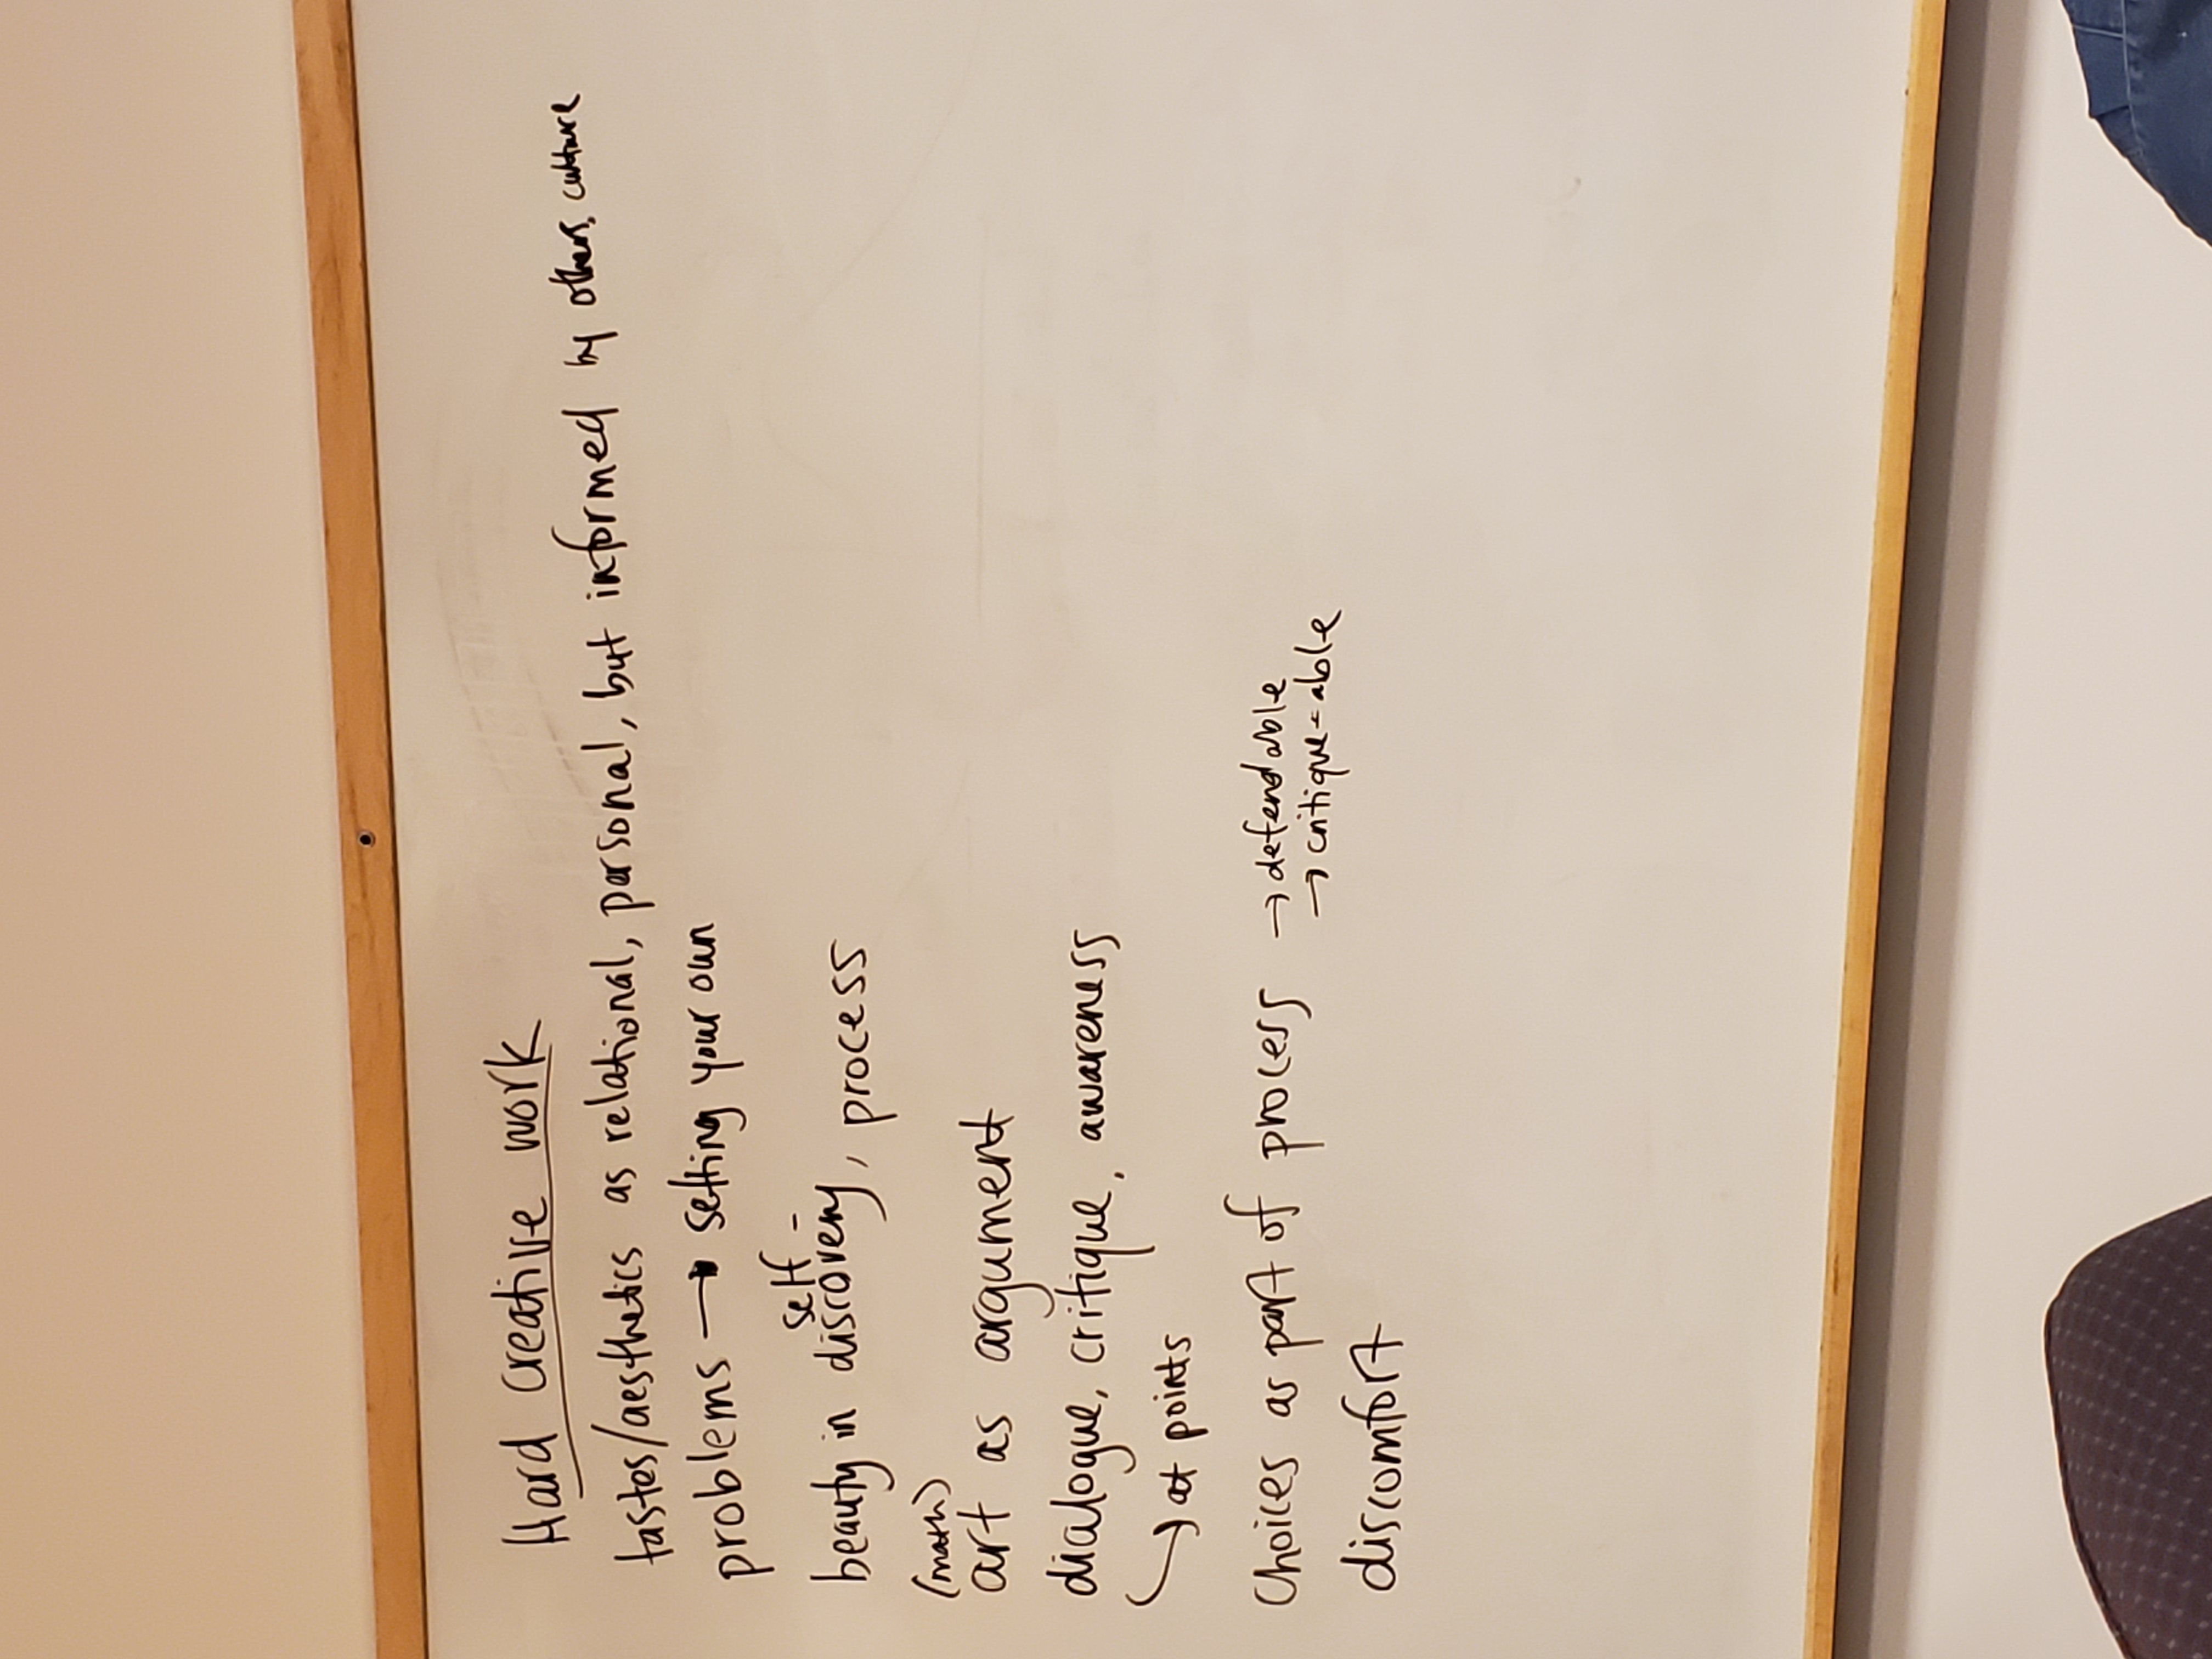 Hard creative work
tastes/aesthetics as relational, personal, but informed by others, culture
problems → setting your own
self-
beauty in discovery, process
(math)
art as argument
dialogue, critique, awareness
→ at points
choices as part of process → defendable
→ critique-able
discomfort